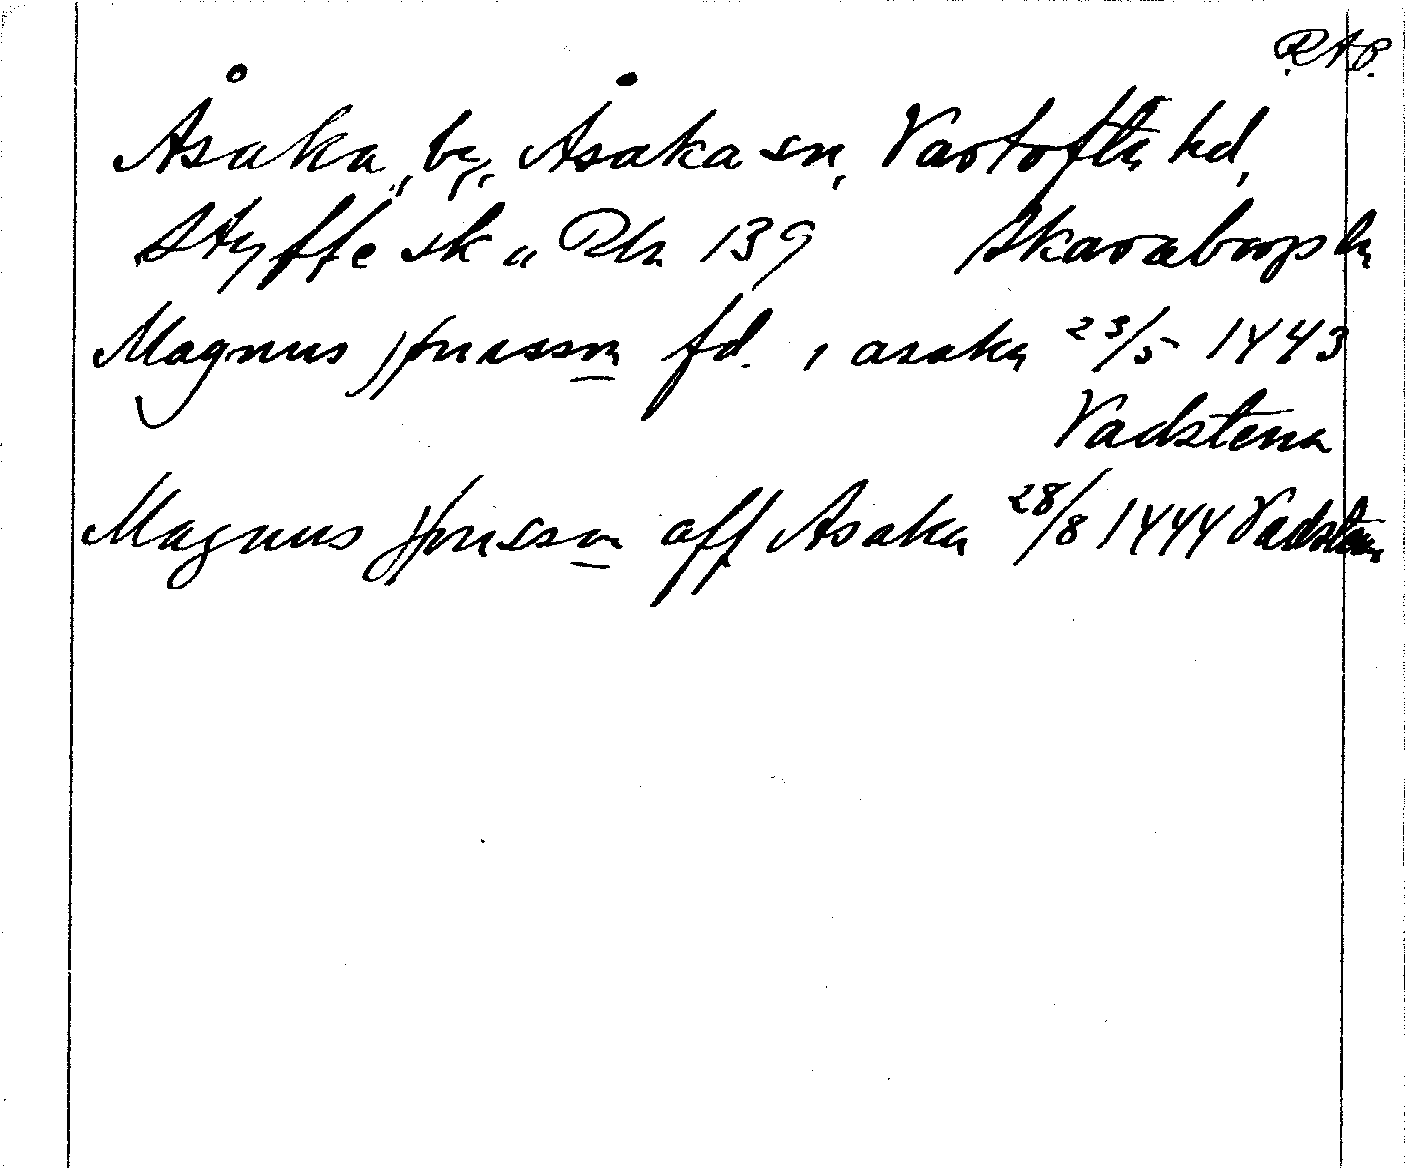 R.A.P.
Åsaka, by, Åsaka sn, Vartofta hd,
Styffe sk. u. Rta 139 Skaraborgs l.
Magnus Jønissøn fd. i asaka 23/5 1443
Vadstena
Magnus Jønissøn aff Asaka 28/8 1444 Vadstena